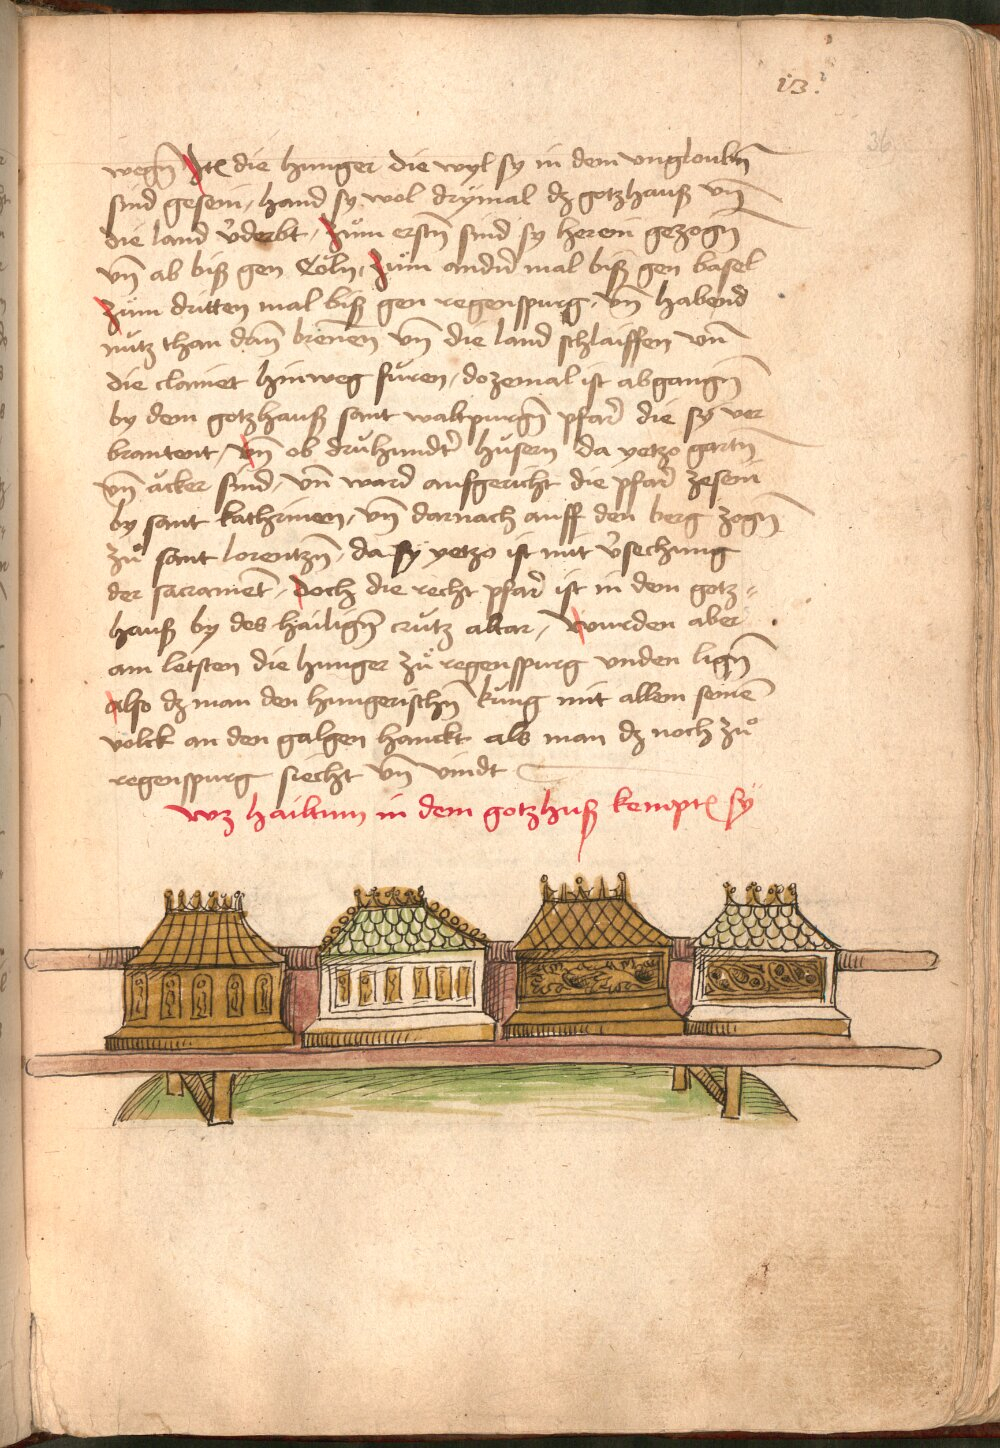 13.
36
wegñ Jtē die hunger die wyl sy in dem vngloubñ
sind gesein, hand sy wol drÿmal dz gotzhauß vñ
die land v̉derbt, zům erstñ sind sy herein gezogñ
vñ ab biß gen Cöln, zům andn̄ mal biß gen basel
zům dritten mal biß gen regenspurg, vñ habend
nütz than dañ breñen vñ die land schlaiffen vñ
die clainet hinweg füren, dozemal ist abgangñ
by dem gotzhauß sant waltpurgñ pfarr̄ die sy ver
brantent, vñ ob drühundert̄ hüsern da yetzo gartñ
vñ äcker sind, vñ ward aufgericht die pfarr̄ zesein
by sant kathrinen, vñ darnach auff den berg zogñ
zů sant lorentzñ, da sy yetzo ist mit v̉sechung
der sacramēt, doch die recht pfarr̄ ist in dem gotz=
hauß by des hailigñ crütz altar, wurden aber
am letsten die hunger zů regenspurg vnden ligñ
also dz man den hungerischñ küng mit allem seinē
volck an den galgen hanckt als man dz noch zů
regenspurg siecht vñ vindt
wz hailtum in dem gotzhuß kemptē sy